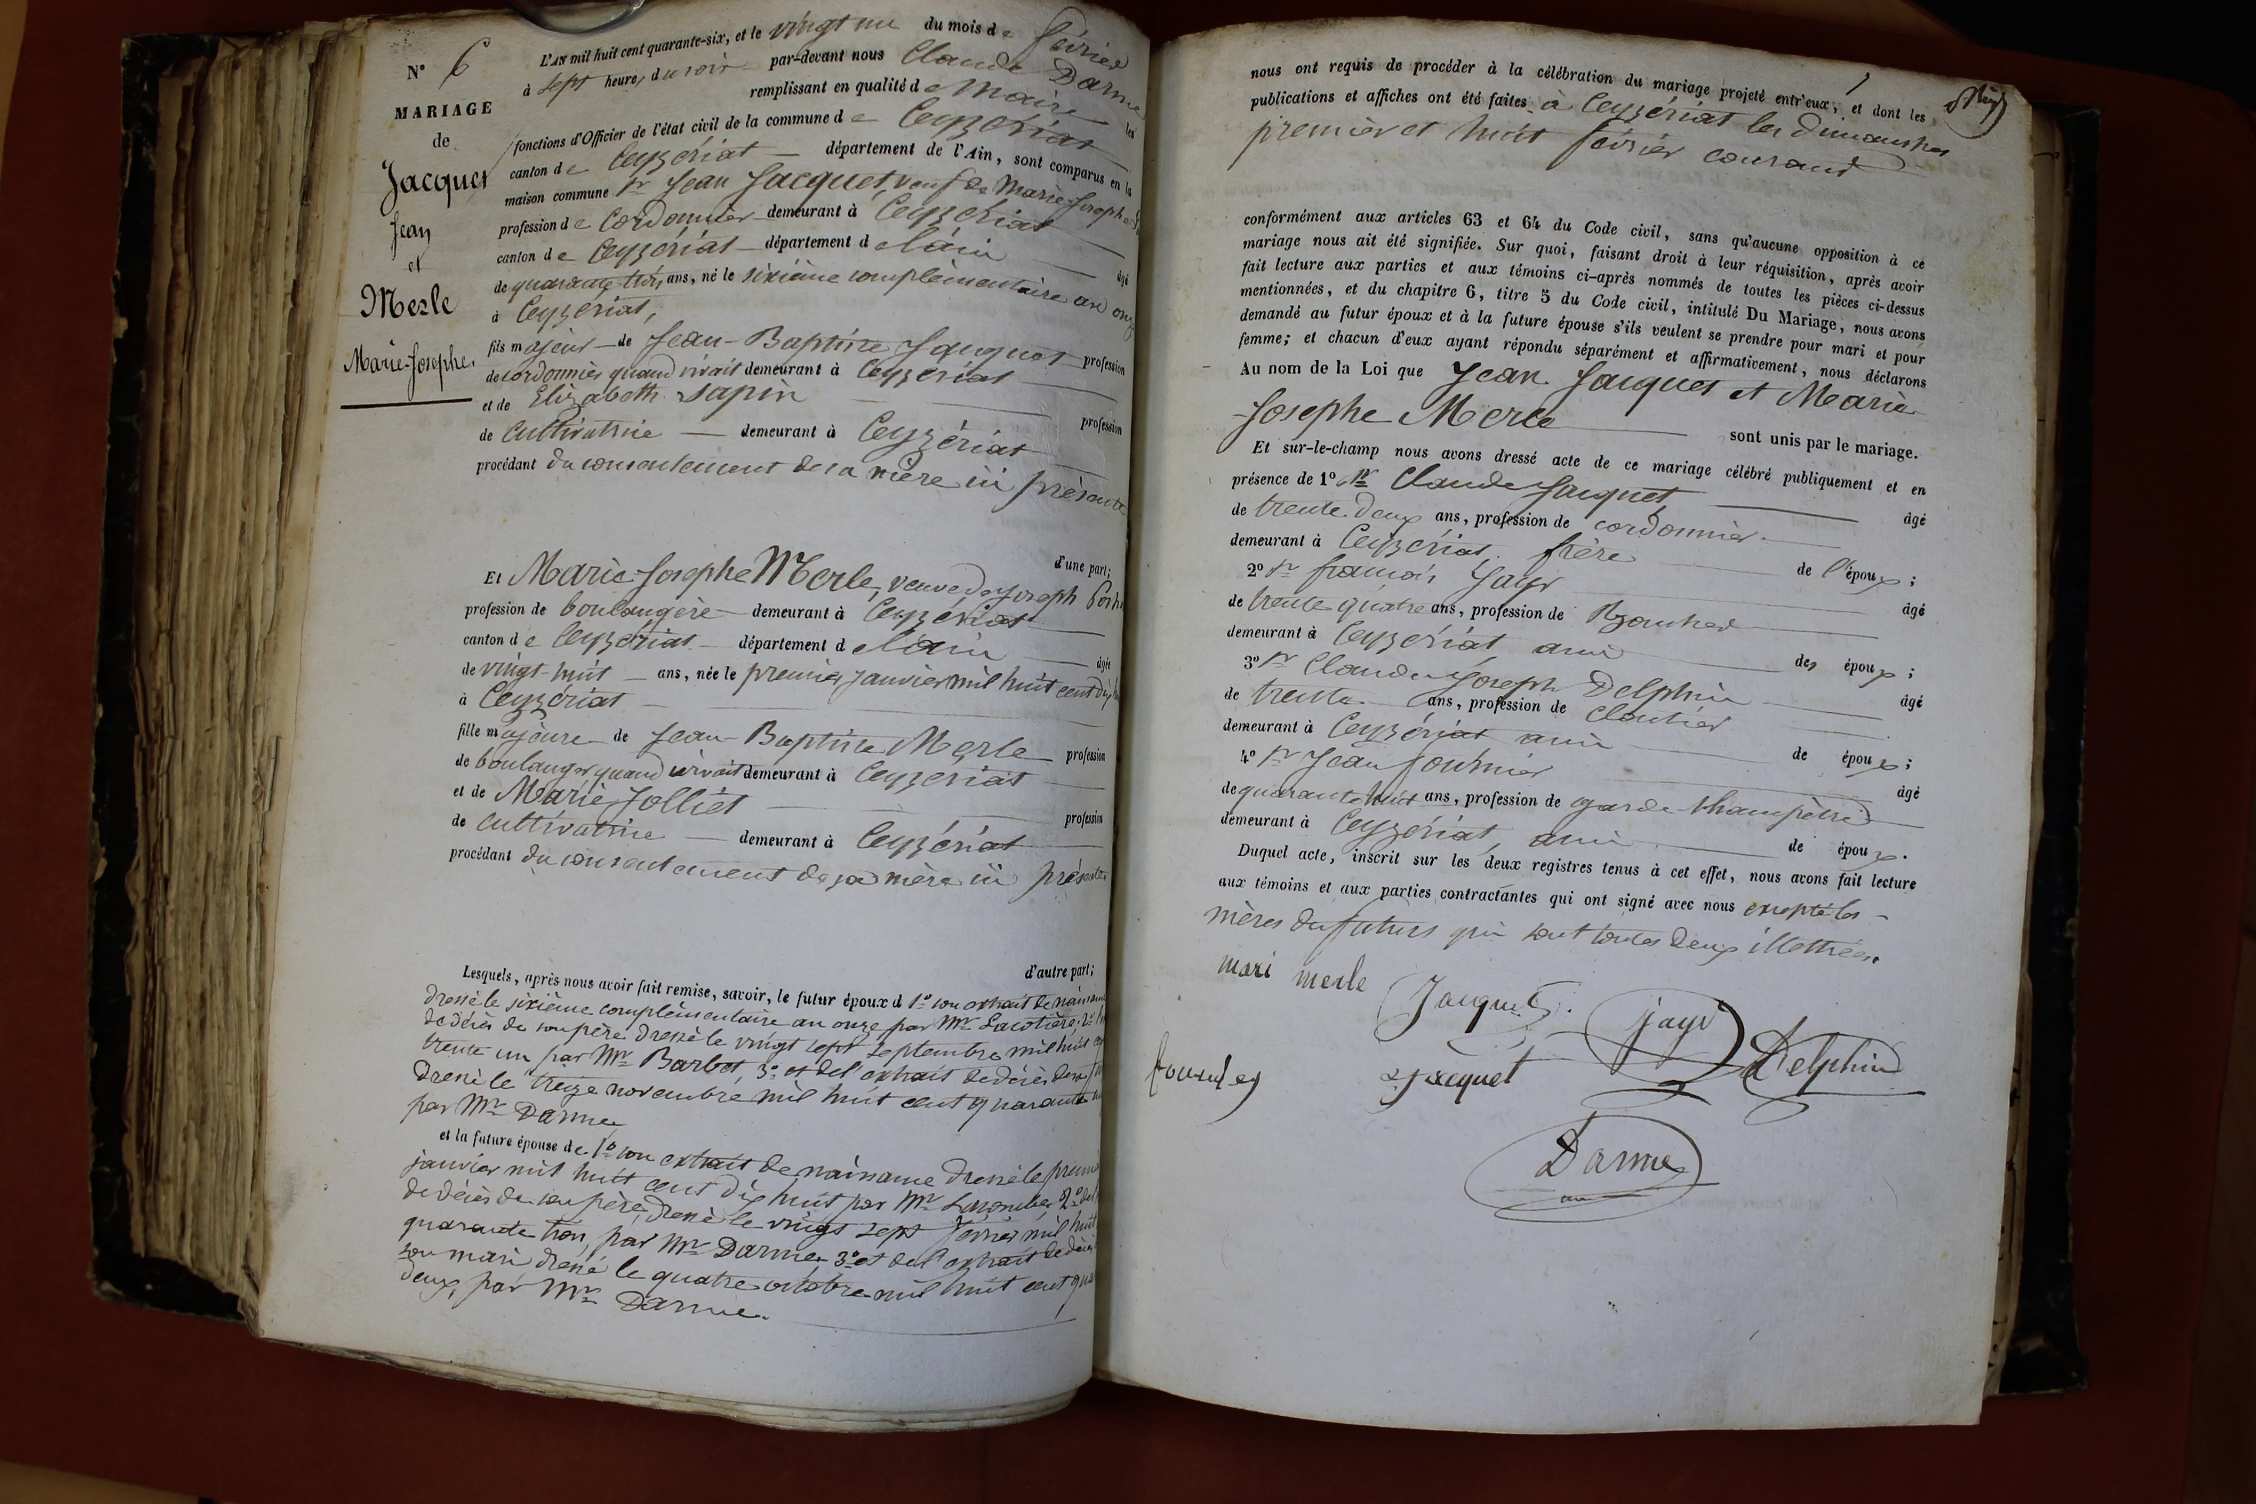 N° 6
MARIAGE
de
Jacquet
Jean
et
Merle
Marie-Josephe
L'AN mil huit cent quarante-six, et le vingt un du mois de février
à sept heures du soir par-devant nous Claude Darme
remplissant en qualité de Maire les
fonctions d'Officier de l'état civil de la commune de Ceyzériat
canton de Ceyzériat département de l'Ain, sont comparus en la
maison commune Sr Jean Jacquet, veuf de Marie-Josephe
profession de cordonnier demeurant à Ceyzériat
canton de Ceyzériat département de l'ain âgé
de quarante-trois ans, né le sixième complémentaire an onze
à Ceyzériat,
fils majeur de Jean-Baptiste Jacquet profession
de cordonnier quand vivait demeurant à Ceyzériat
et de Elizabeth Sapin profession
de cultivatrice demeurant à Ceyzériat
procédant du consentement de sa mère ici présente
d'une part;
Et Marie-Josephe Merle, veuve de Joseph
profession de boulangère demeurant à Ceyzériat
canton de Ceyzériat département de l'ain âgée
de vingt-huit ans, née le premier janvier mil huit cent dix
à Ceyzériat
fille majeure de Jean-Baptiste Merle profession
de boulanger quand vivait demeurant à Ceyzériat
et de Marie Jolliet profession
de cultivatrice demeurant à Ceyzériat
procédant du consentement de sa mère ici présente
d'autre part;
Lesquels, après nous avoir fait remise, savoir, le futur époux d 1° son extrait de naissance
dressé le sixième complémentaire an onze par Mr Lacotière, 2°
de décès de son père dressé le vingt sept septembre mil huit cent
trente un par Mr Barbet, 3° et de l'extrait de décès de sa
dressé le treize novembre mil huit cent quarante
par Mr Darme
et la future épouse de 1° son extrait de naissance dressé le premier
janvier mil huit cent dix huit par Mr 2° de
de décès de son père, dressé le vingt sept février mil huit
quarante trois, par Mr Darme, 3° et de l'extrait de décès
son mari dressé le quatre octobre mil huit cent
deux, par Mr Darme.
nous ont requis de procéder à la célébration du mariage projeté entr'eux, et dont les
publications et affiches ont été faites à Ceyzériat les dimanches
premier et huit février courant
conformément aux articles 63 et 64 du Code civil, sans qu'aucune opposition à ce
mariage nous ait été signifiée. Sur quoi, faisant droit à leur réquisition, après avoir
fait lecture aux parties et aux témoins ci-après nommés de toutes les pièces ci-dessus
mentionnées, et du chapitre 6, titre 5 du Code civil, intitulé Du Mariage, nous avons
demandé au futur époux et à la future épouse s'ils veulent se prendre pour mari et pour
femme; et chacun d'eux ayant répondu séparément et affirmativement, nous déclarons
Au nom de la Loi que Jean Jacquet et Marie-
Josephe Merle sont unis par le mariage.
Et sur-le-champ nous avons dressé acte de ce mariage célébré publiquement et en
présence de 1° Sr Claude Jacquet, âgé
de trente-deux ans, profession de cordonnier
demeurant à Ceyzériat, frère de l'époux;
2° Sr françois Jayr âgé
de trente-quatre ans, profession de
demeurant à Ceyzériat ami des époux;
3° Sr Claude-Joseph Delphin âgé
de trente ans, profession de cloutier
demeurant à Ceyzériat ami de époux;
4° Sr Jean fournier âgé
de quarante-huit ans, profession de garde-champêtre
demeurant à Ceyzériat, ami de époux.
Duquel acte, inscrit sur les deux registres tenus à cet effet, nous avons fait lecture
aux témoins et aux parties contractantes qui ont signé avec nous excepté les
mères des futurs qui sont toutes deux illettrées.
mari merle Jacquet jayr
fournier Jacquet Delphin
Darme